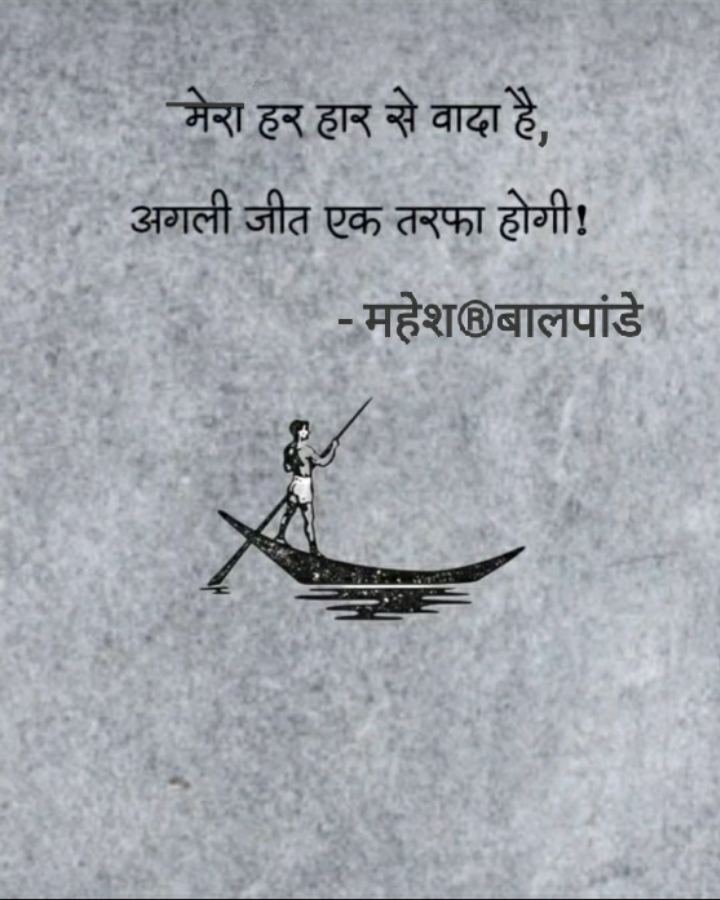 मेरा हर हार से वादा है,
अगली जीत एक तरफा होगी!
- महेश®बालपांडे